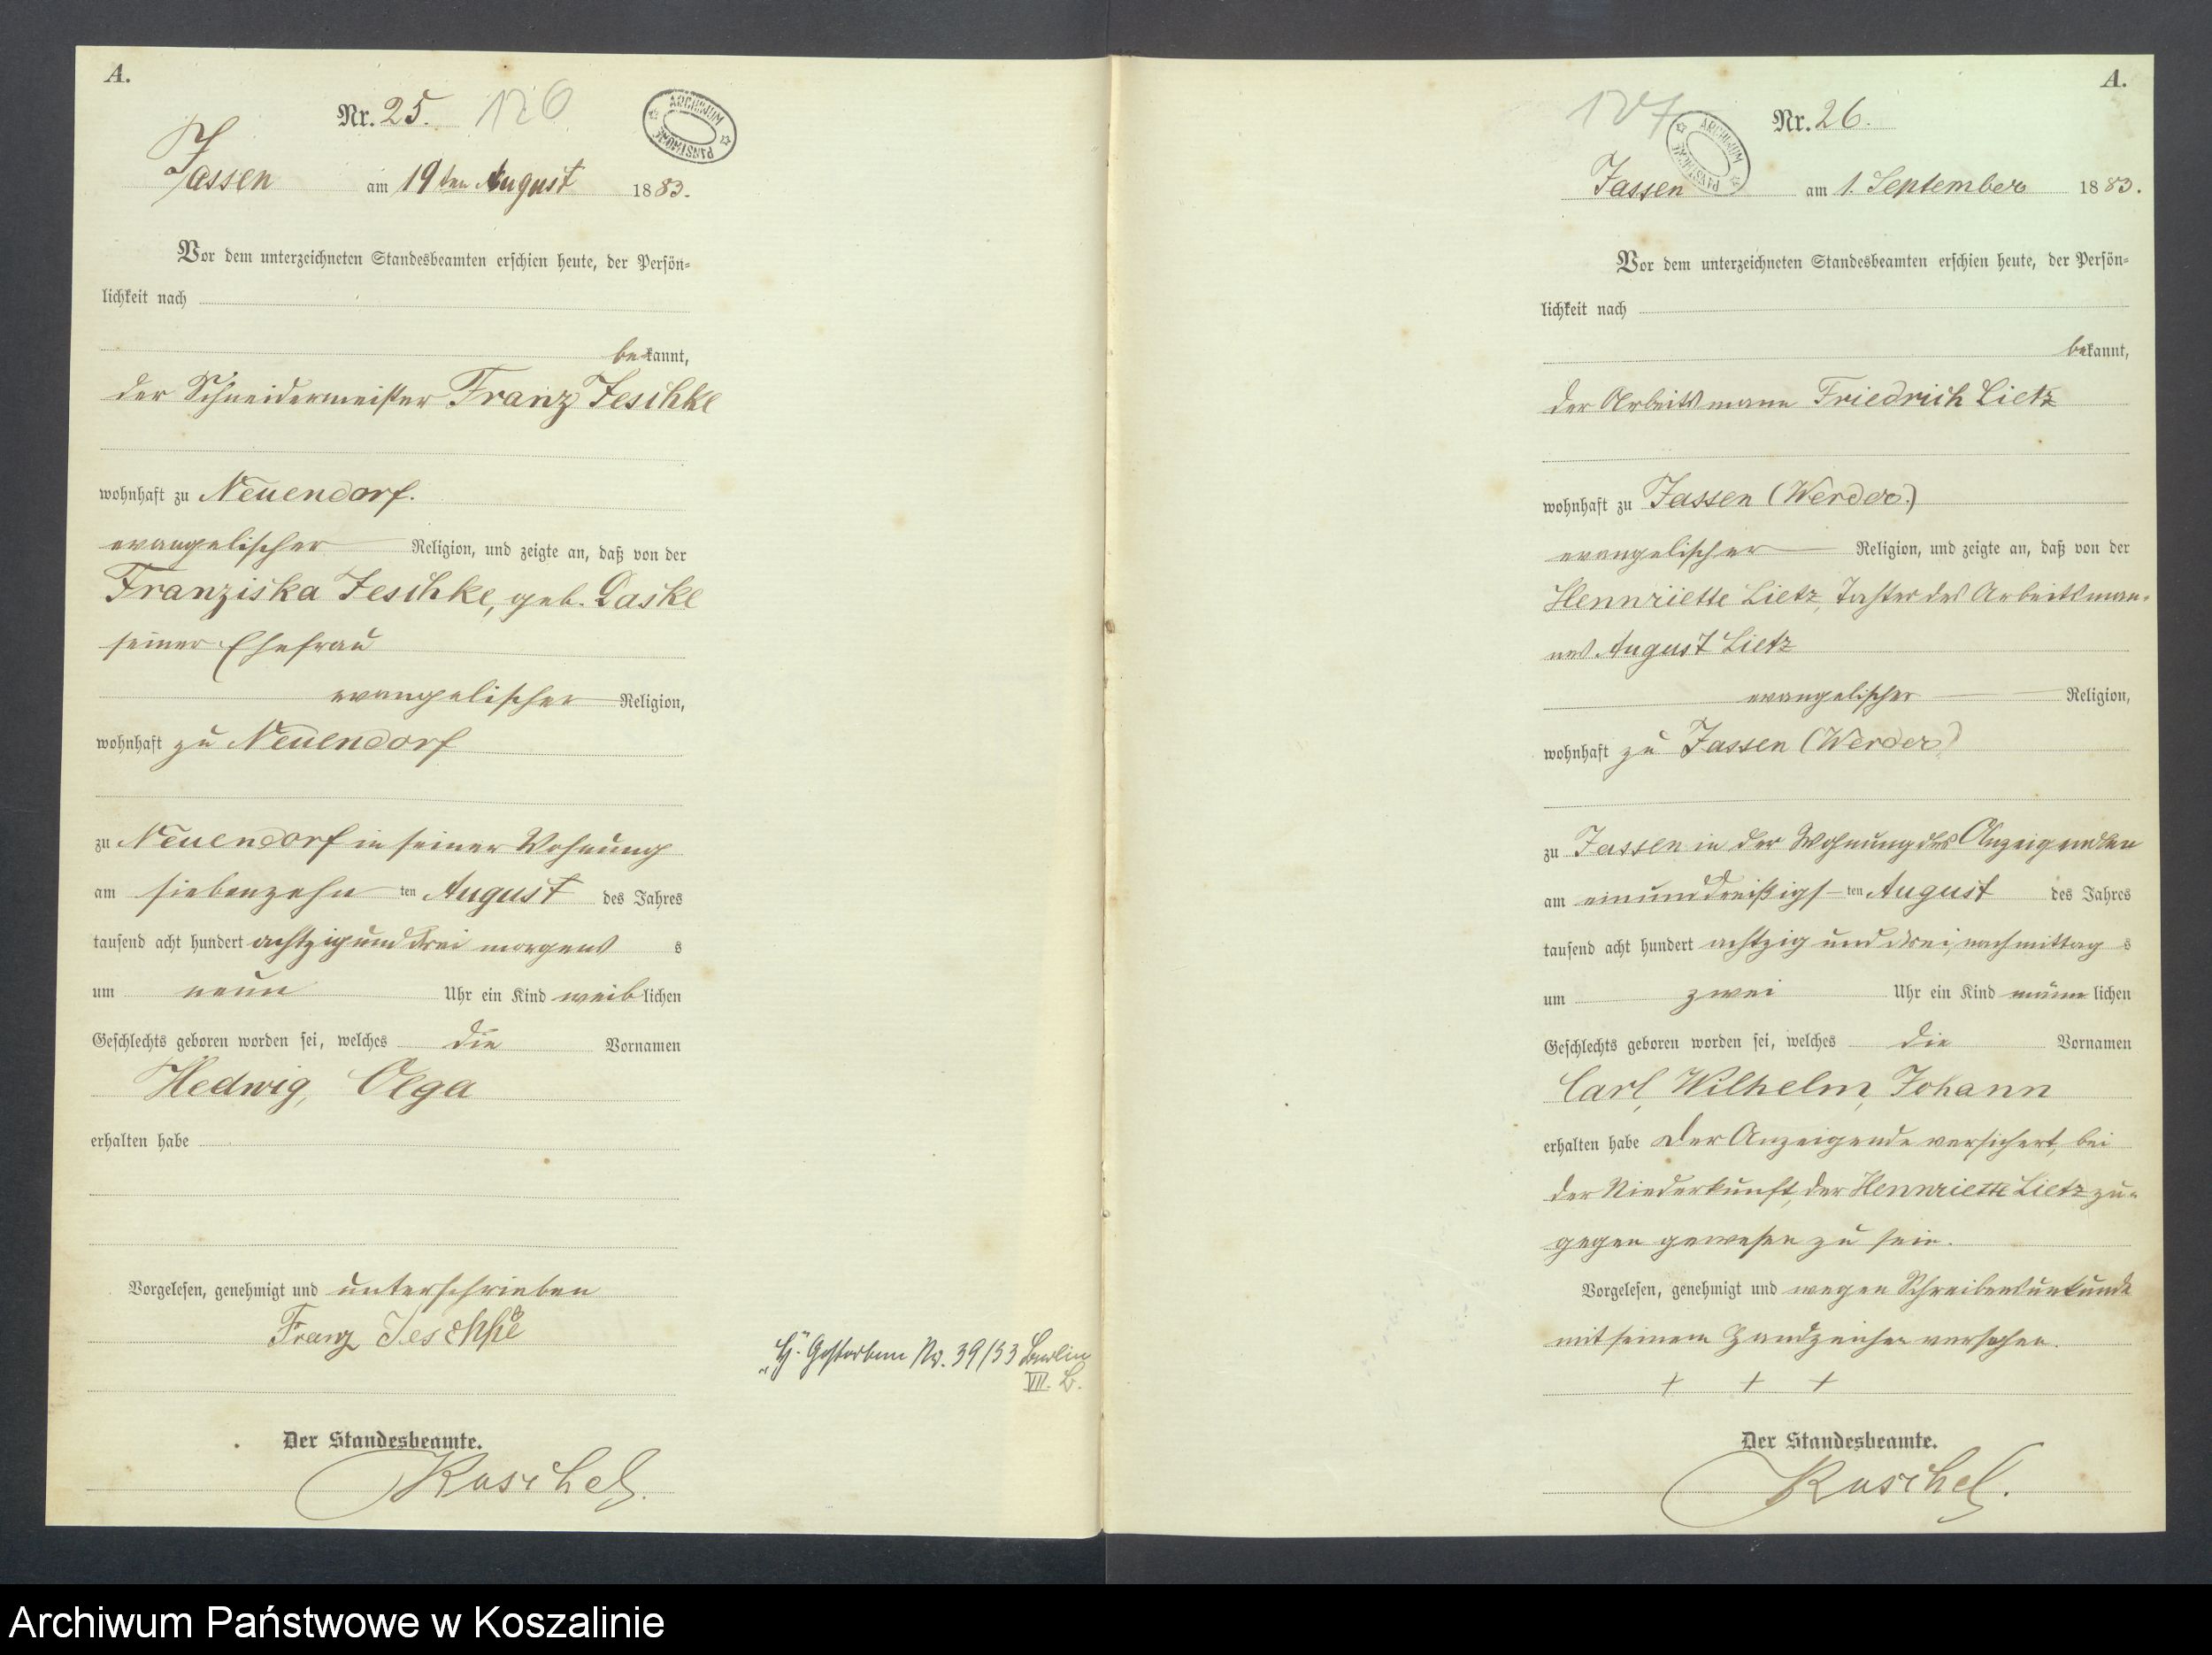 A.
Nr. 25. 126
ARCHIWUM PAŃSTWOWE
Jassen am 19ten August 1883.
Vor dem unterzeichneten Standesbeamten erschien heute, der Persön-
lichkeit nach
bekannt,
der Schneidermeister Franz Jeschke
wohnhaft zu Neuendorf.
evangelischer Religion, und zeigte an, daß von der
Franziska Jeschke, geb. Laske
seiner Ehefrau
evangelischer Religion,
wohnhaft zu Neuendorf
zu Neuendorf in seiner Wohnung
am siebenzehn ten August des Jahres
tausend acht hundert achtzig und drei morgens s
um neun Uhr ein Kind weiblichen
Geschlechts geboren worden sei, welches die Vornamen
Hedwig, Olga
erhalten habe
Vorgelesen, genehmigt und unterschrieben
Franz Jeschke
Der Standesbeamte.
Ruschel.
"H". Gestorben Nr. 39/33 Berlin
VII. B.
A.
127 Nr. 26.
ARCHIWUM PAŃSTWOWE
Jassen am 1. September 1883.
Vor dem unterzeichneten Standesbeamten erschien heute, der Persön-
lichkeit nach
bekannt,
der Arbeitsmann Friedrich Lietz
wohnhaft zu Jassen (Werder)
evangelischer Religion, und zeigte an, daß von der
Hennriette Lietz, Tochter des Arbeitsman-
nes August Lietz
evangelischer Religion,
wohnhaft zu Jassen (Werder)
zu Jassen in der Wohnung des Anzeigenden
am einunddreißigst ten August des Jahres
tausend acht hundert achtzig und drei, nachmittag s
um zwei Uhr ein Kind männlichen
Geschlechts geboren worden sei, welches die Vornamen
Carl, Wilhelm, Johann
erhalten habe Der Anzeigende versichert, bei
der Niederkunft der Hennriette Lietz zu-
gegen gewesen zu sein.
Vorgelesen, genehmigt und wegen Schreibensunkunde
mit seinem Handzeichen versehen.
+ + +
Der Standesbeamte.
Ruschel.
Archiwum Państwowe w Koszalinie